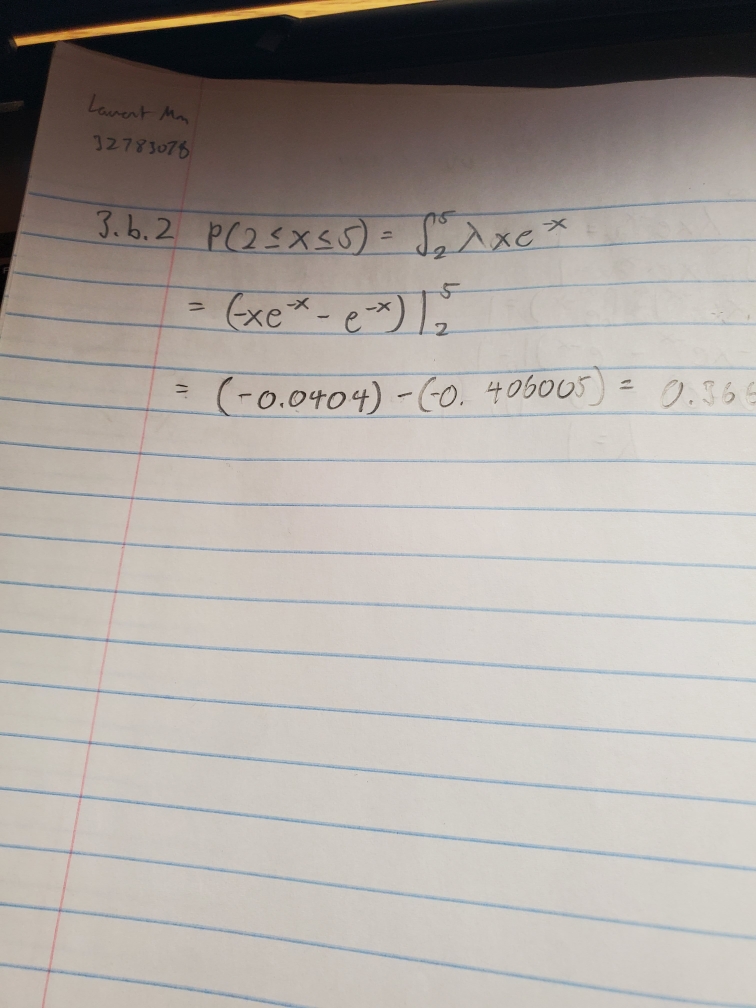 Laurent Mm
32783078
3.b.2 P(2≤X≤5) = ∫₂⁵ λxe⁻ˣ
= (-xe⁻ˣ - e⁻ˣ)|₂⁵
= (-0.0404) - (-0.406005) = 0.36